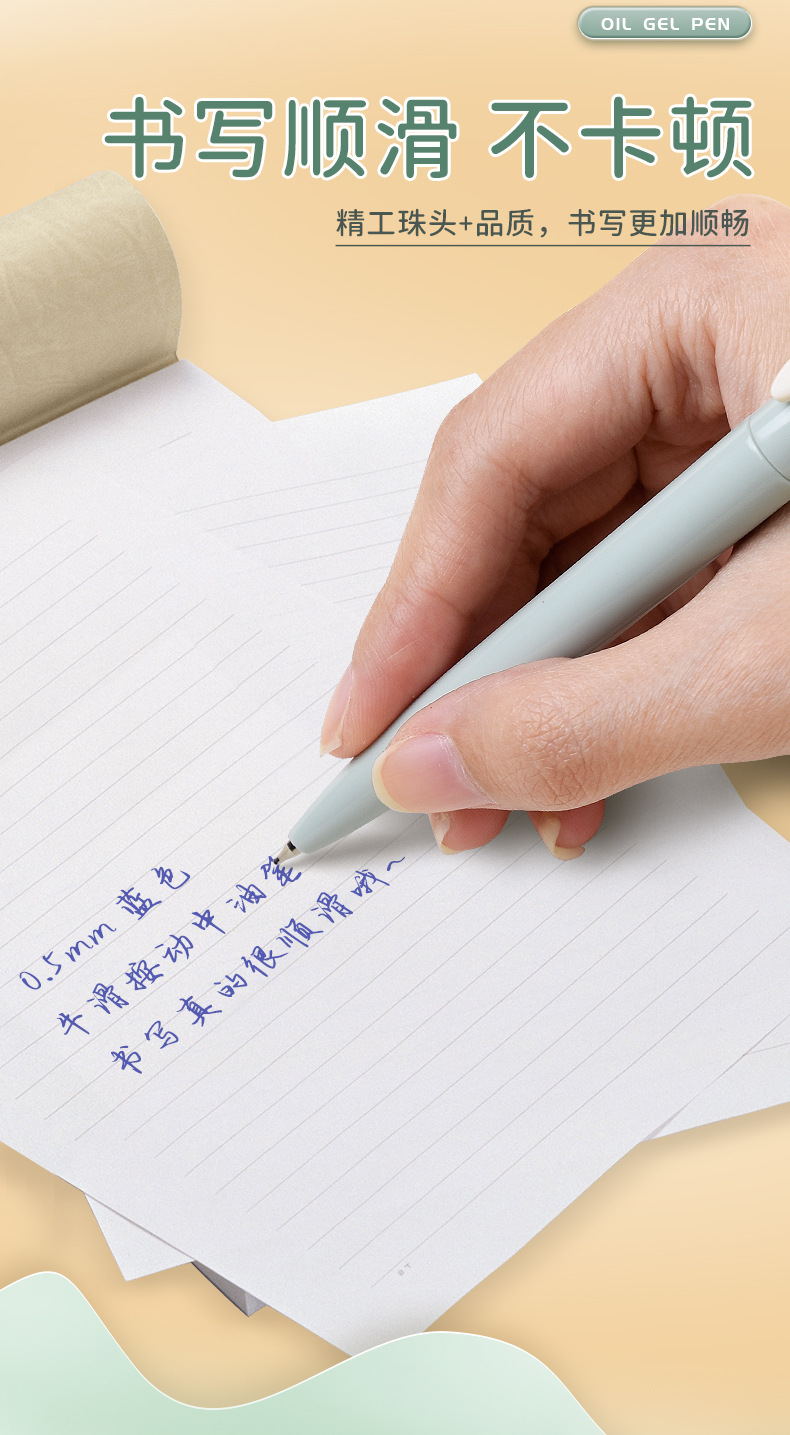 OIL GEL PEN
书写顺滑 不卡顿
精工珠头+品质，书写更加顺畅
0.5mm 蓝色
牛滑按动中油笔
书写真的很顺滑哦~
BT